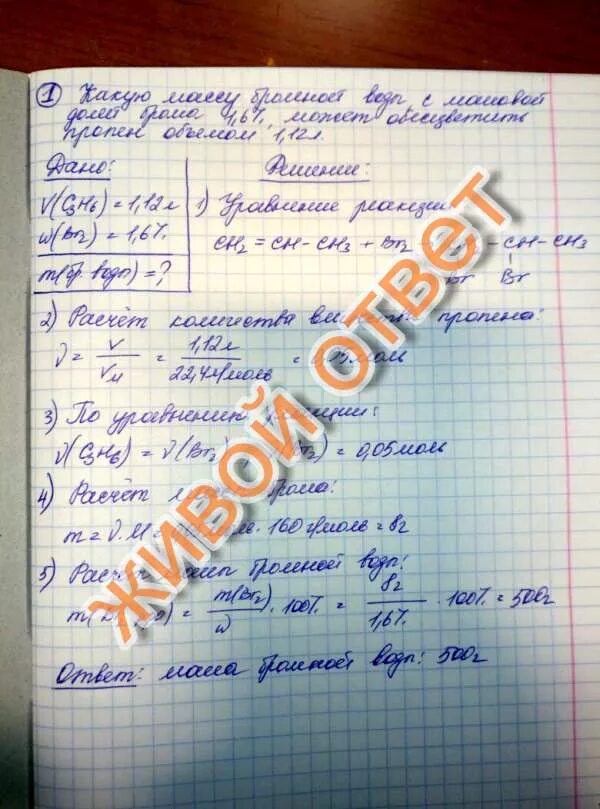 1 Какую массу бромной воды с массовой
долей брома 1,6%, может обесцветить
пропен объёмом 1,12л.
Дано:
V(C3H6) = 1,12л
ω(Br2) = 1,6%
m(бр. воды) = ?
Решение:
1) Уравнение реакции
CH2 = CH - CH3 + Br2 - CH - CH3
Br
2) Расчёт количества пропена:
ν = V/Vм = 1,12л/22,4л/моль = моль
3) По уравнению
ν(C3H6) = ν(Br2) = 0,05моль
4) Расчёт брома:
m = ν·M = · 160г/моль = 8г
5) Расчёт бромной воды:
m( ) = m(Br2)/ω · 100% = 8г/1,6% · 100% = 500г
Ответ: масса бромной воды: 500г
ЖИВОЙ ОТВЕТ